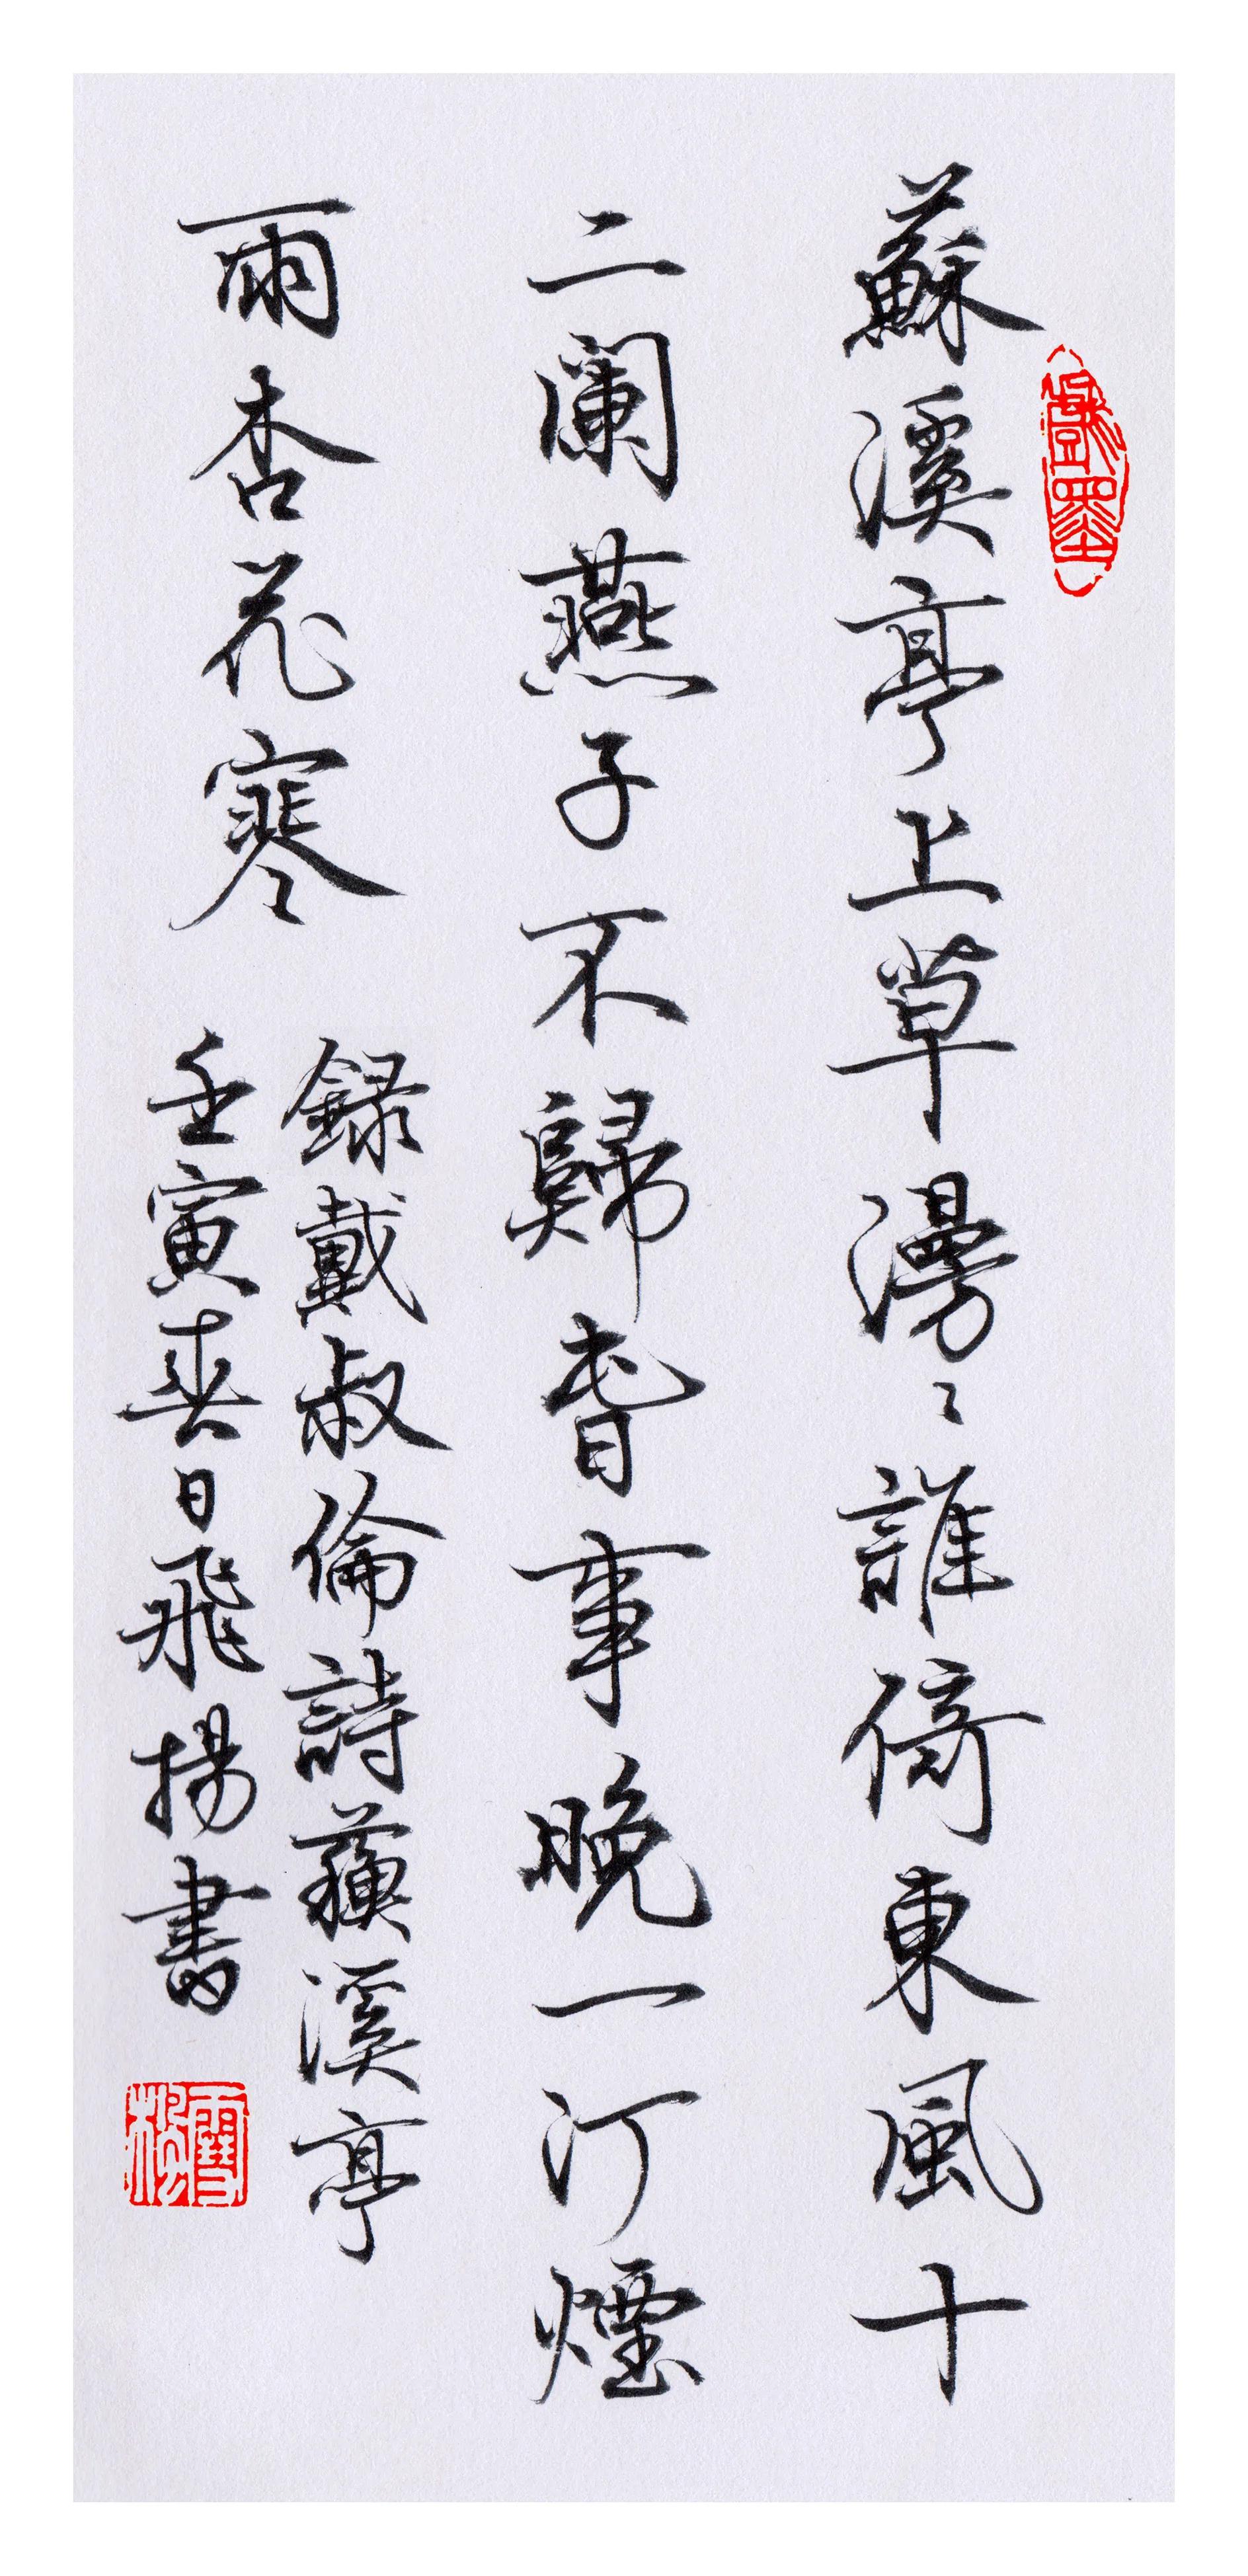 戲墨
蘇溪亭上草漫々誰倚東風十
二闌燕子不歸旾事晚一汀煙
雨杏花寒
録戴叔倫詩蘇溪亭
壬寅春日飛揚書